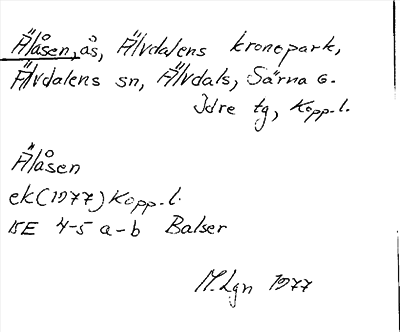 Älåsen, ås, Älvdalens kronopark,
Älvdalens sn, Älvdals, Särna o.
Idre tg, Kopp.l.
Älåsen
ek (1977) Kopp.l.
15E 4-5 a-b Balser
M.Lgn 1977